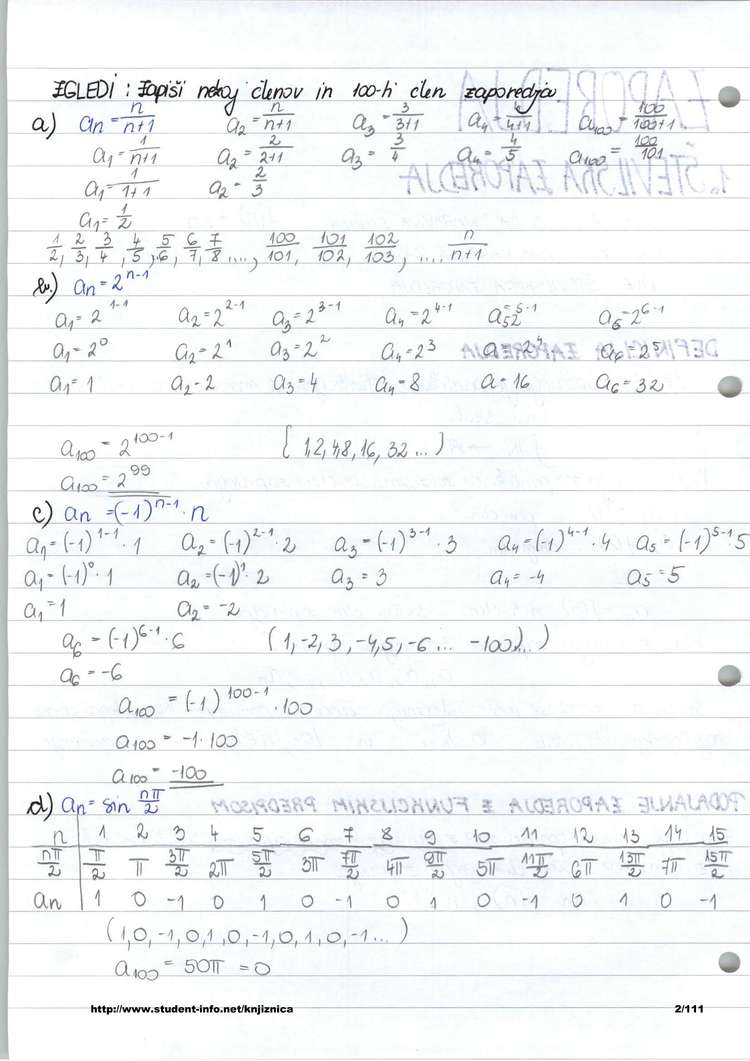 ZGLEDI : Zapiši nekaj členov in 100-ti člen zaporedja
a) an = n/n+1 a2 = n/n+1 a3 = 3/3+1 a4 = 4/4+1 a100 = 100/100+1
a1 = 1/n+1 a2 = 2/2+1 a3 = 3/4 a4 = 4/5 a100 = 100/101
a1 = 1/1+1 a2 = 2/3
a1 = 1/2
1/2, 2/3, 3/4, 4/5, 5/6, 6/7, 7/8 ...., 100/101, 101/102, 102/103, ... n/n+1
b.) an = 2^n-1
a1 = 2^1-1 a2 = 2^2-1 a3 = 2^3-1 a4 = 2^4-1 a5 = 2^5-1 a6 = 2^6-1
a1 = 2^0 a2 = 2^1 a3 = 2^2 a4 = 2^3 a = 2^4 a6 = 2^5
a1 = 1 a2 = 2 a3 = 4 a4 = 8 a = 16 a6 = 32
a100 = 2^100-1 { 1,2,4,8,16,32 ... )
a100 = 2^99
c) an = (-1)^n-1 · n
a1 = (-1)^1-1 · 1 a2 = (-1)^2-1 · 2 a3 = (-1)^3-1 · 3 a4 = (-1)^4-1 · 4 a5 = (-1)^5-1 · 5
a1 = (-1)^0 · 1 a2 = (-1)^1 · 2 a3 = 3 a4 = -4 a5 = 5
a1 = 1 a2 = -2
a6 = (-1)^6-1 · 6 ( 1, -2, 3, -4, 5, -6 ... -100, ...)
a6 = -6
a100 = (-1)^100-1 · 100
a100 = -1 · 100
a100 = -100
d) an = sin nπ/2
n 1 2 3 4 5 6 7 8 9 10 11 12 13 14 15
nπ/2 π/2 π 3π/2 2π 5π/2 3π 7π/2 4π 9π/2 5π 11π/2 6π 13π/2 7π 15π/2
an 1 0 -1 0 1 0 -1 0 1 0 -1 0 1 0 -1
( 1, 0, -1, 0, 1, 0, -1, 0, 1, 0, -1 ... )
a100 = 50π = 0
http://www.student-info.net/knjiznica 2/111